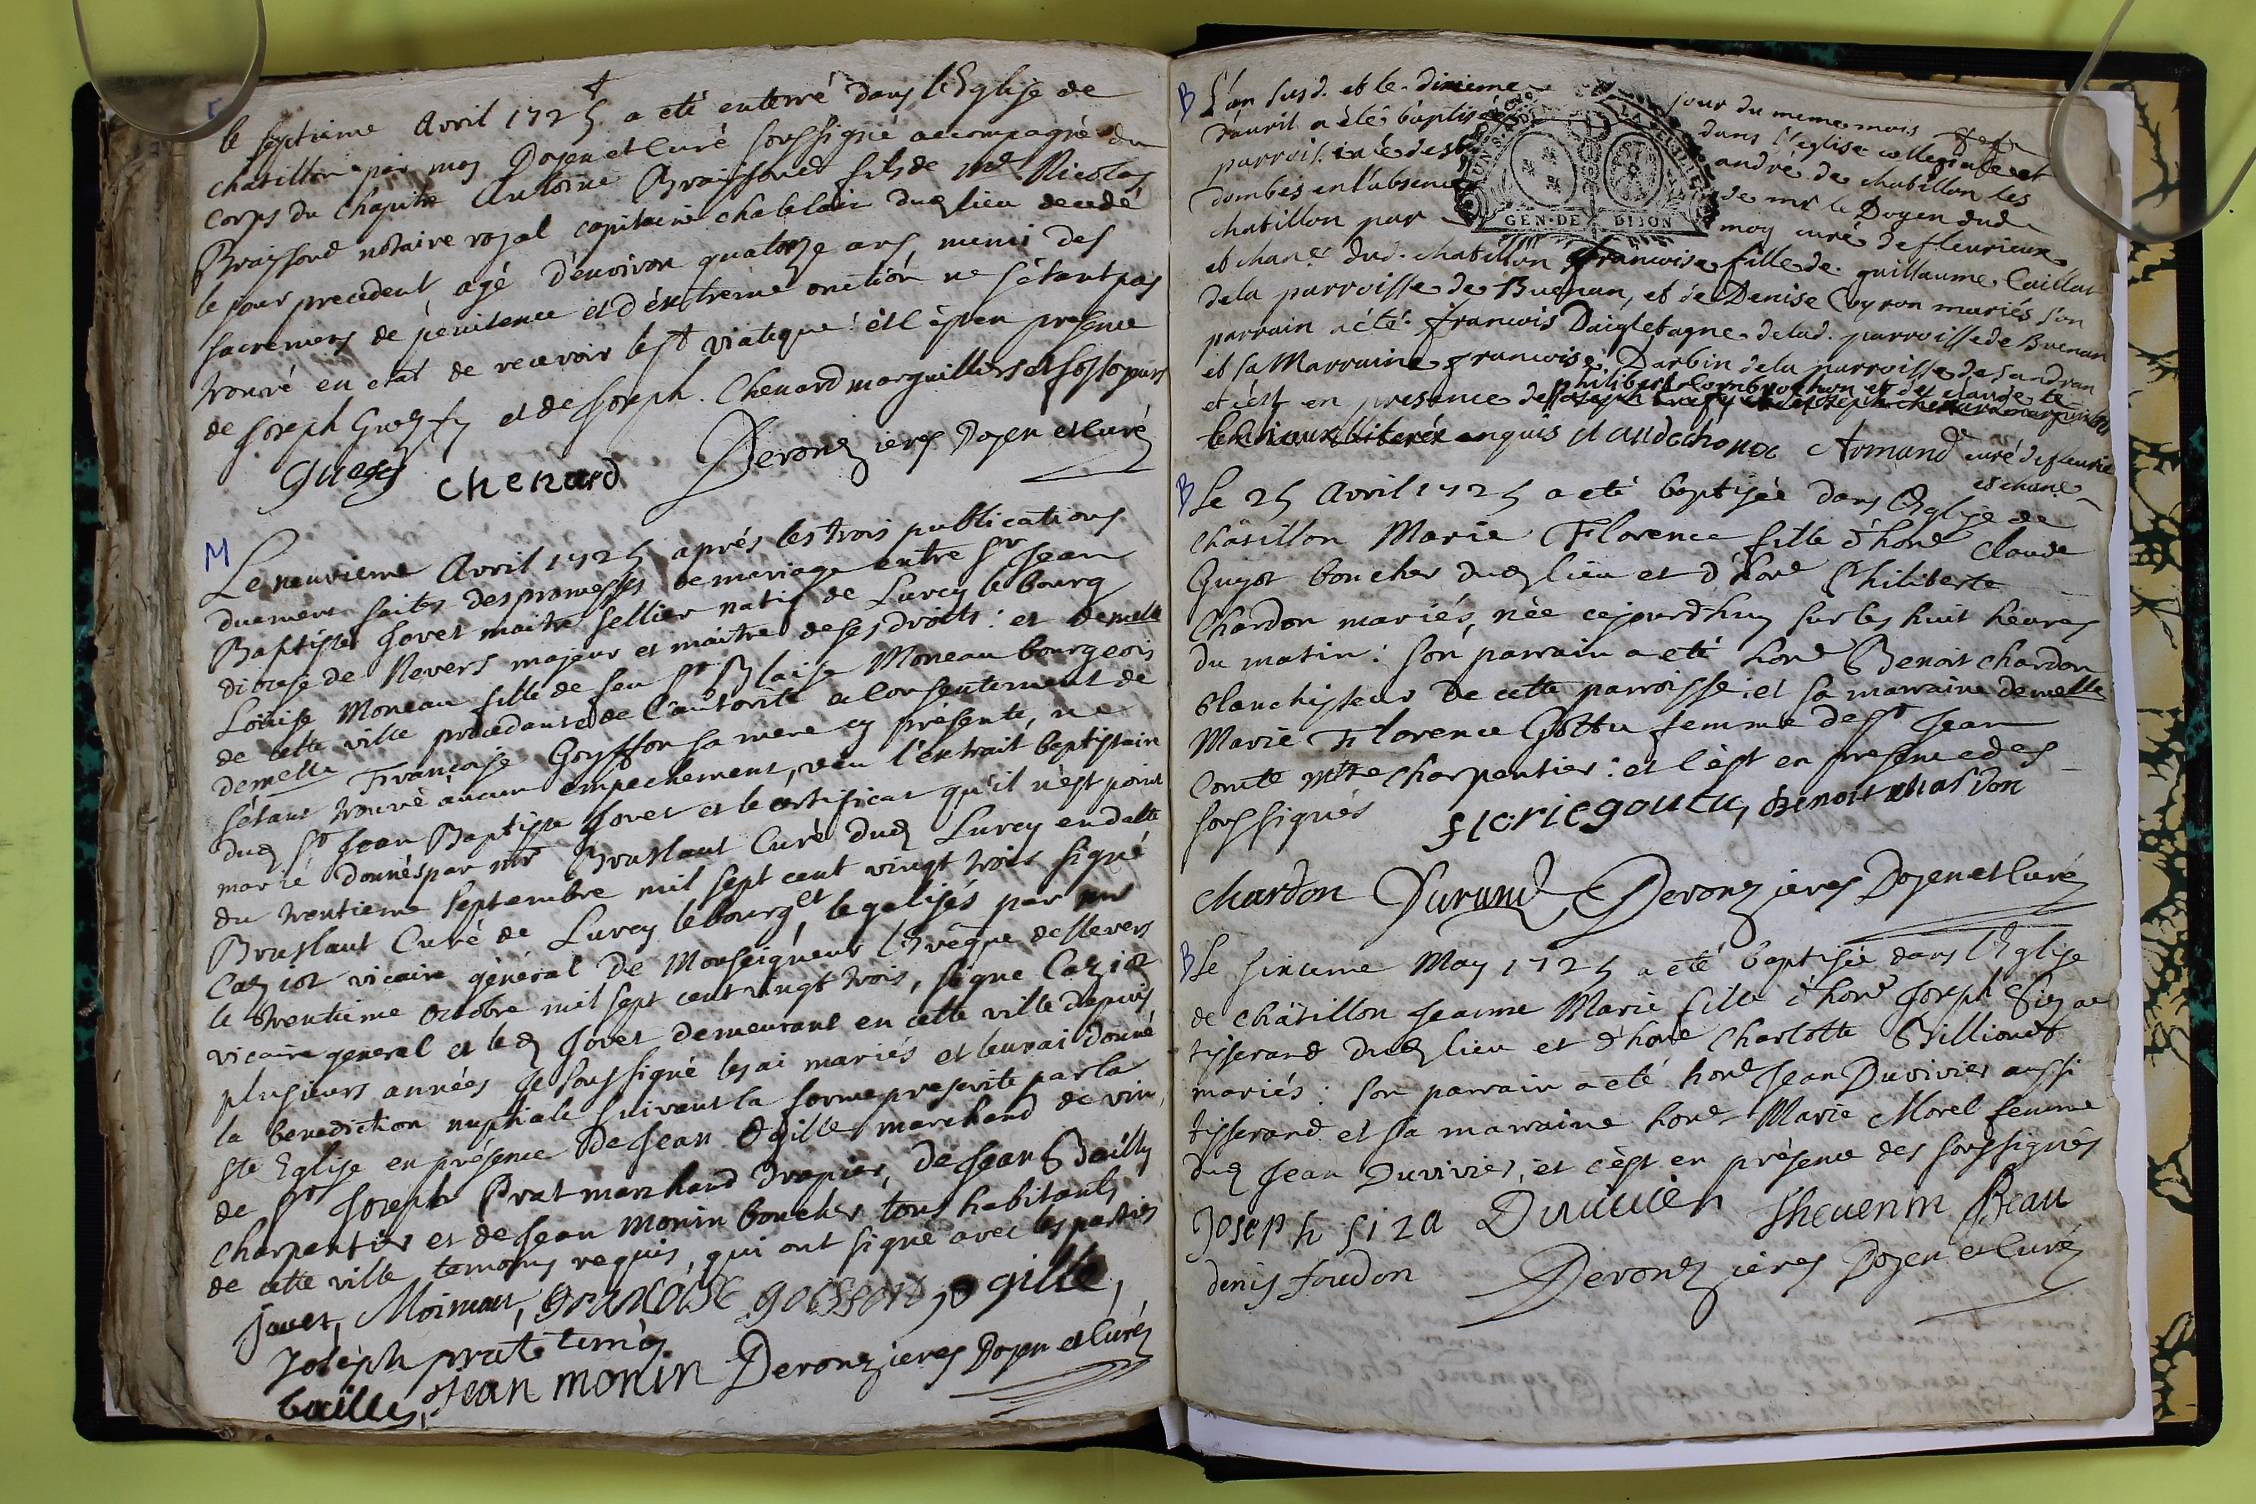 le septieme Avril 1725 a eté enterré dans l'Eglise de
chatillon par moy Doyen et Curé soussigné accompagné du
corps du chapitre Antoine Braissoud fils de Me Nicolas
Braissoud notaire royal capitaine chatelain dud lieu decedé
le jour precedent, agé d'environ quatorze ans, muni des
sacremens de penitence et d'extreme onction ne s'etant pas
trouvé en etat de recevoir le st viatique: et c'est en presence
de Joseph et de Joseph Chenard marguilliers et fossoyeurs
chenard Deronzieres Doyen et Curé
M Le neuvieme Avril 1725 aprés les trois publications
duement faites des promesses de mariage entre Sr Jean
Baptiste Jovet maitre sellier natif de Lurcy le bourg
diocese de Nevers majeur et maitre de ses droits: et demelle
Louise Moneau fille de feu Sr Blaise Moneau bourgeois
de cette ville procedante de l'autorité et consentement de
demelle Françoise Goyffon sa mere cy présente, ne
s'etant trouvé aucun empechement, veu l'extrait baptistaire
dud Sr Jean Baptiste Jovet et le certificat qu'il n'est point
marié donnés par mr Bruslaut Curé dud Lurcy en datte
du trentieme septembre mil sept cent vingt trois signé
Bruslaut Curé de Lurcy le bourg et legalisés par mr
Caziot vicaire général de Monseigneur l'Evêque de Nevers
le trentieme octobre mil sept cent vingt trois, signé Caziot
vicaire general et led Jovet demeurant en cette ville depuis
plusieurs années Je soussigné les ai mariés et leur ai donné
la benediction nuptiale suivant la forme prescrite par la
ste Eglise en présence de Jean Ogille marchand de vin,
de Sr Joseph Prat marchand drapier, de Jean Bailly
charpentier et de Jean Monin boucher tous habitants
de cette ville temoins requis, qui ont signé avec les parties
Jovet, Moineau, francoise goiffon, ogille,
Joseph prat temoin
bailly, Jean monin Deronzieres Doyen et Curé
B L'an susd. et le dixieme jour du meme mois
d'avril a été baptisée dans l'eglise collegiale et
parroissiale de st andré de chatillon les
dombes en l'absence de mr le Doyen dud
chatillon par moy curé de fleurieux
et chane dud. chatillon francoise fille de guillaume Caillat
de la parroisse de Buenan, et de Denise Coyron mariés son
parrain a été francois Daigletagne de lad. parroisse de Buenan
et sa Marraine francoise Darbin de la parroisse de sandran
et c'est en presence de philibert Cornbrochon et de claude
Armand curé de fleurieu
et chane
B Le 25 Avril 1725 a eté baptisée dans l'Eglise de
châtillon Marie Florence fille d'hone Claude
Guyot boucher dud lieu et d'hone Philiberte
Chardon mariés, née cejourd'huy sur les huit heures
du matin: son parrain a eté hone Benoit chardon
blanchisseur de cette parroisse, et sa marraine demelle
Marie Florence Gottu femme de Sr Jean
Comte mtre charpentier: et c'est en presence des
soussignés Benoit
chardon Durand Deronzieres Doyen et Curé
B Le sixieme May 1725 a eté baptisée dans l'Eglise
de châtillon Jeanne Marie fille d'hone Joseph
tisserand dud lieu et d'hone Charlotte Billioud
mariés: son parrain a eté hone Jean Duvivier aussi
tisserand et sa marraine hone Marie Morel femme
dud Jean Duvivier, et c'est en présence des soussignés
Joseph siza Duvivier Thevenin Beau
denis foudon Deronzieres Doyen et Curé
GEN·DE DIJON